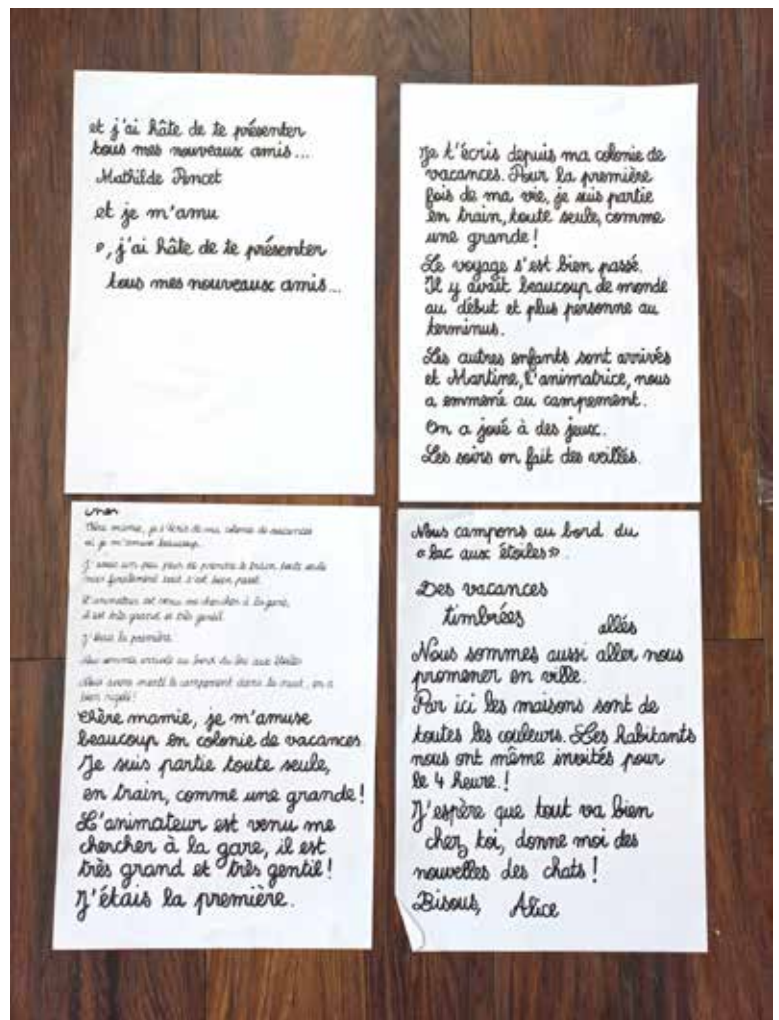 et j'ai hâte de te présenter
tous mes nouveaux amis...
Mathilde Poncet
et je m'amu
, j'ai hâte de te présenter
tous mes nouveaux amis...
Je t'écris depuis ma colonie de
vacances. Pour la première
fois de ma vie, je suis partie
en train, toute seule, comme
une grande !
Le voyage s'est bien passé.
Il y avait beaucoup de monde
au début et plus personne au
terminus.
Les autres enfants sont arrivés
et Martine, l'animatrice, nous
a emmené au campement.
On a joué à des jeux.
Les soirs on fait des veillés.
Chère mamie, je t'écris de ma colonie de vacances
où je m'amuse beaucoup.
J'avais un peu peur de prendre le train toute seule
mais finalement tout s'est bien passé.
L'animateur est venu me chercher à la gare,
il est très grand et très gentil.
J'étais la première.
Nous sommes arrivés au bord du lac aux étoiles
Nous avons monté le campement dans la nuit, on a
bien rigolé !
Chère mamie, je m'amuse
beaucoup en colonie de vacances.
Je suis partie toute seule,
en train, comme une grande !
L'animateur est venu me
chercher à la gare, il est
très grand et très gentil !
J'étais la première.
Nous campons au bord du
« lac aux étoiles ».
Des vacances
timbrées
allés
Nous sommes aussi aller nous
promener en ville.
Par ici les maisons sont de
toutes les couleurs. Les habitants
nous ont même invités pour
le 4 heure. !
J'espère que tout va bien
chez toi, donne moi des
nouvelles des chats !
Bisous, Alice